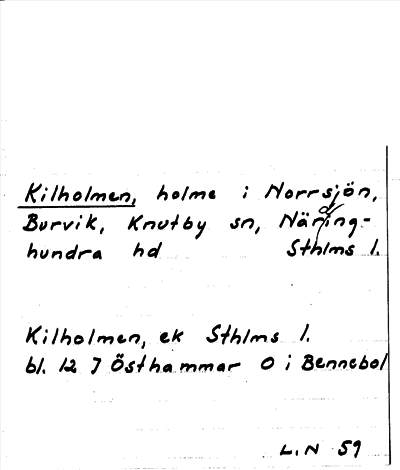 Kilholmen, holme i Norrsjön,
Burvik, Knutby sn, Närding-
hundra hd Sthlms l.
Kilholmen, ek Sthlms l.
bl. 12 7 Östhammar O i Bennebol
L.N 59